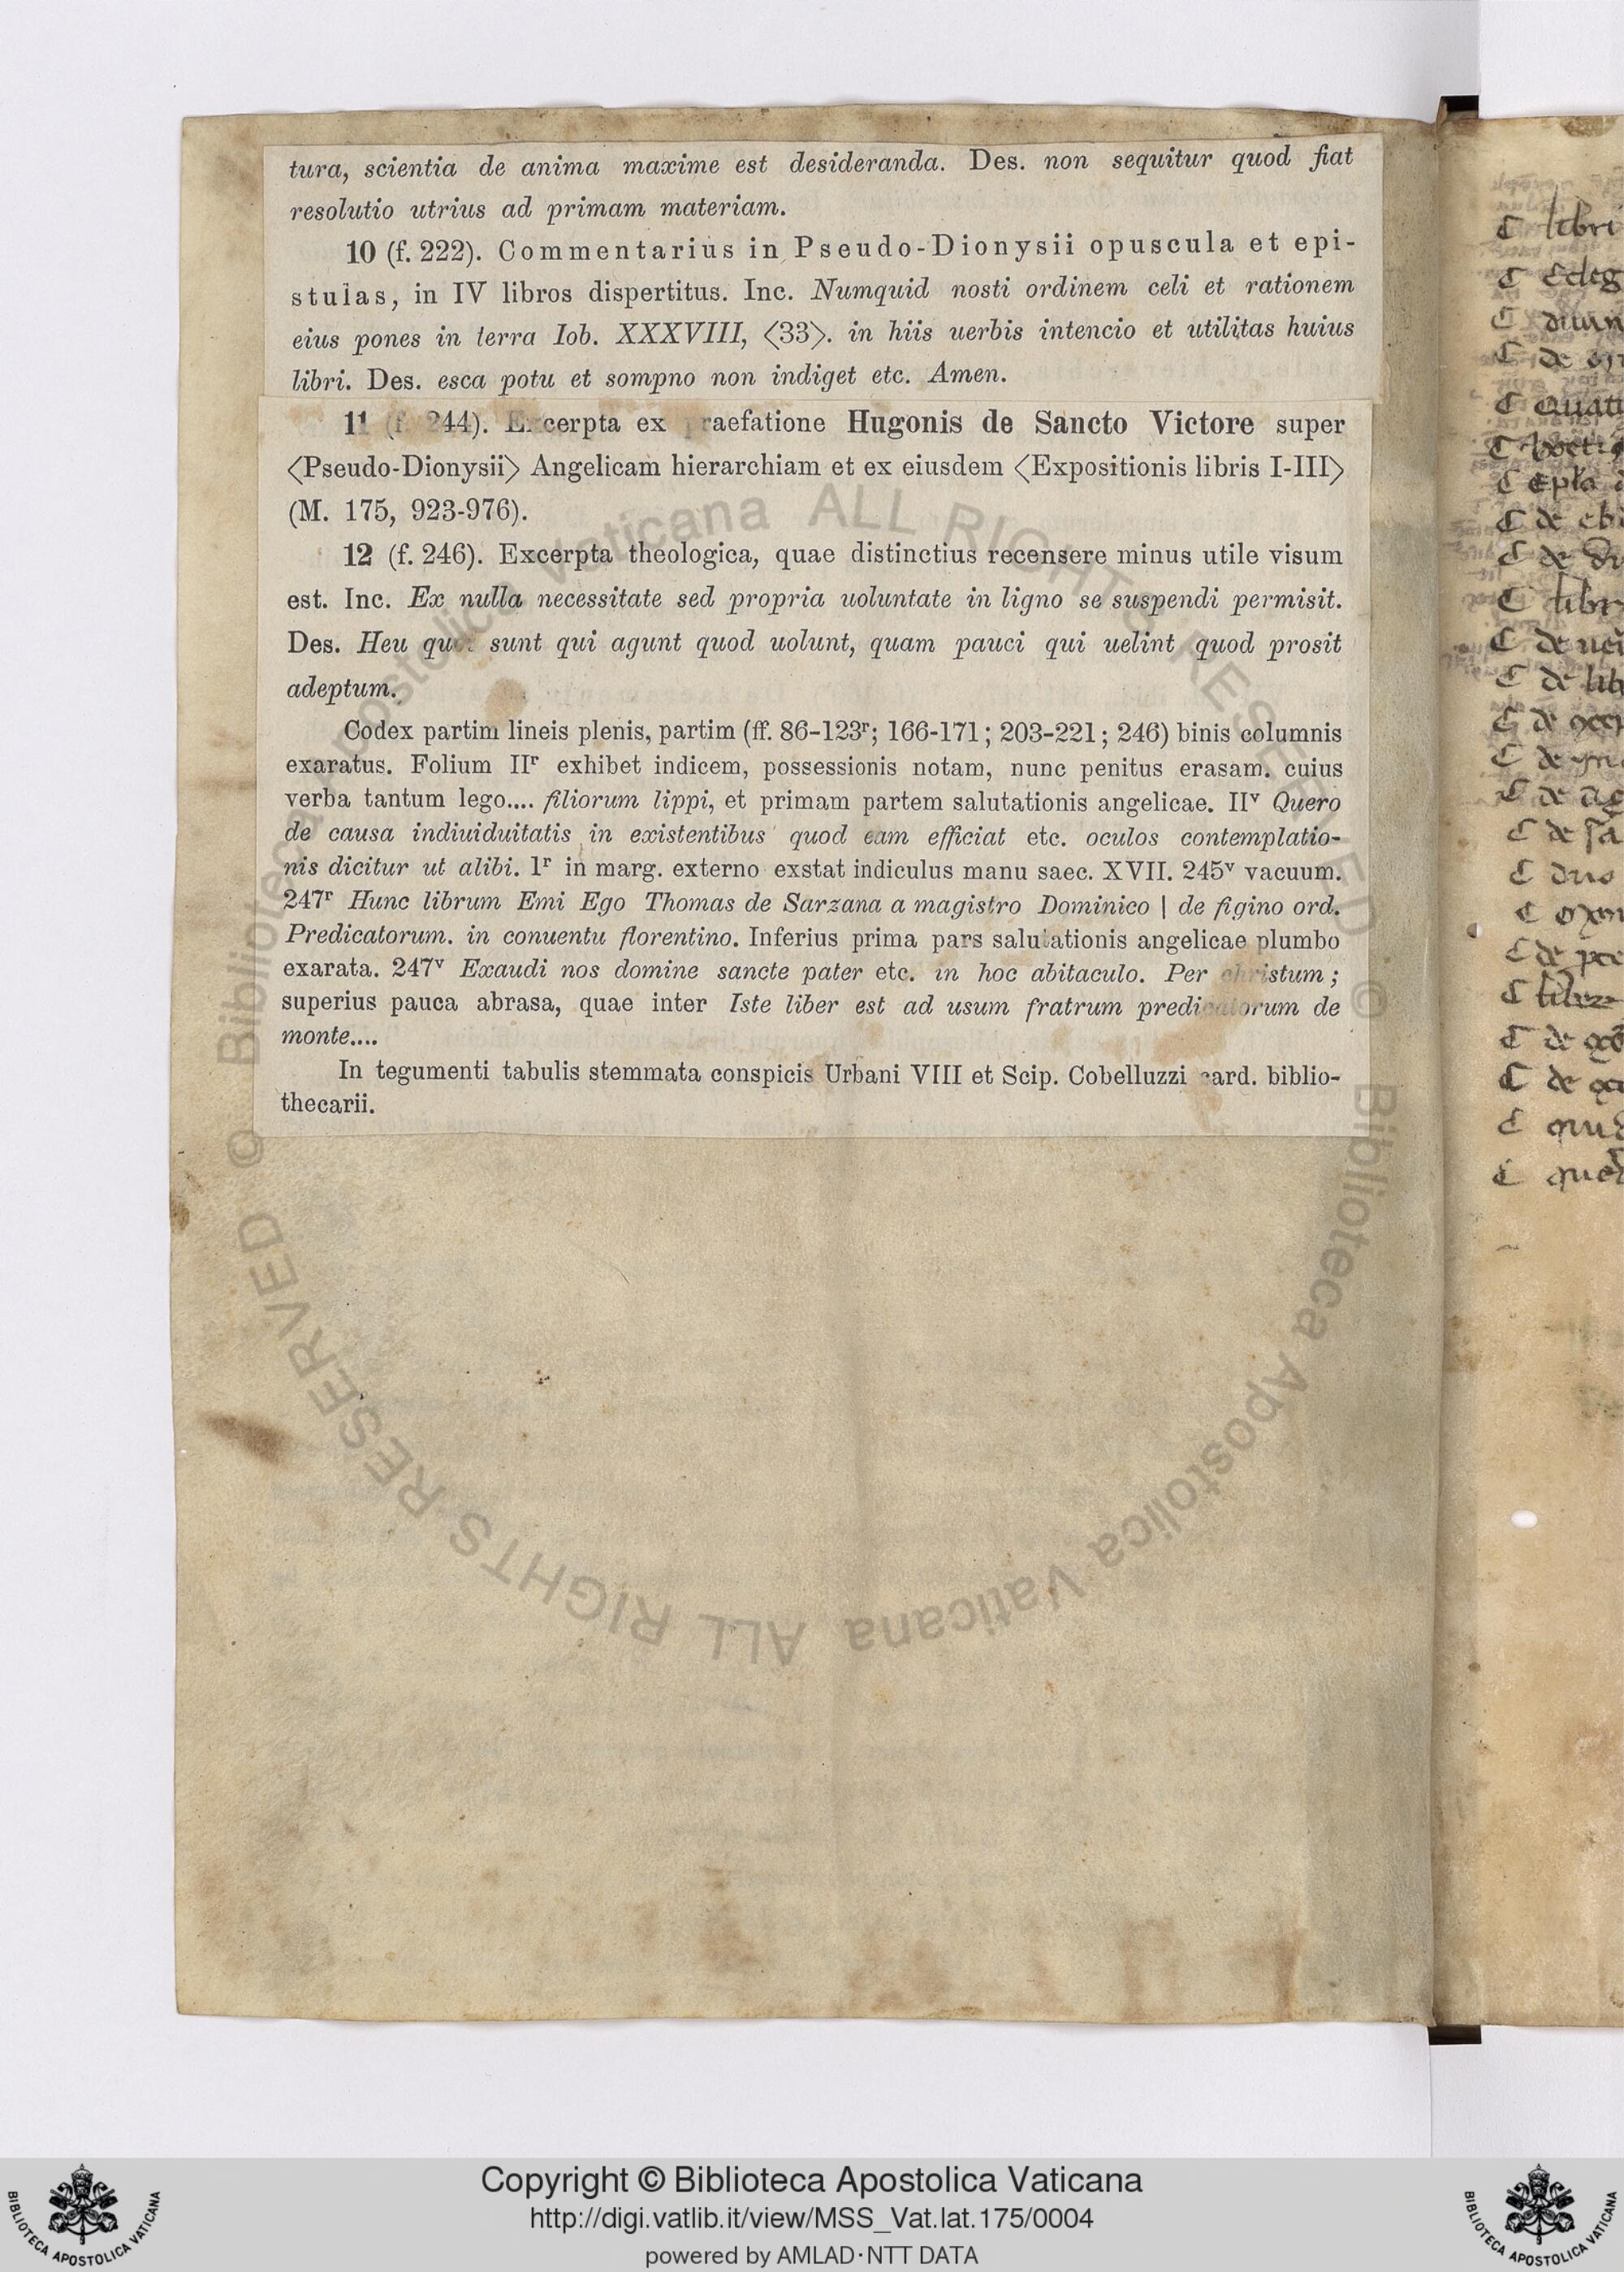 tura, scientia de anima maxime est desideranda. Des. non sequitur quod fiat
resolutio utrius ad primam materiam.
10 (f. 222). Commentarius in Pseudo-Dionysii opuscula et epi-
stulas, in IV libros dispertitus. Inc. Numquid nosti ordinem celi et rationem
eius pones in terra Iob. XXXVIII, ⟨33⟩. in hiis uerbis intencio et utilitas huius
libri. Des. esca potu et sompno non indiget etc. Amen.
11 (f. 244). Excerpta ex praefatione Hugonis de Sancto Victore super
⟨Pseudo-Dionysii⟩ Angelicam hierarchiam et ex eiusdem ⟨Expositionis libris I-III⟩
(M. 175, 923-976).
12 (f. 246). Excerpta theologica, quae distinctius recensere minus utile visum
est. Inc. Ex nulla necessitate sed propria uoluntate in ligno se suspendi permisit.
Des. Heu quot sunt qui agunt quod uolunt, quam pauci qui uelint quod prosit
adeptum.
Codex partim lineis plenis, partim (ff. 86-123r; 166-171; 203-221; 246) binis columnis
exaratus. Folium IIr exhibet indicem, possessionis notam, nunc penitus erasam. cuius
verba tantum lego.... filiorum lippi, et primam partem salutationis angelicae. IIv Quero
de causa indiuiduitatis in existentibus quod eam efficiat etc. oculos contemplatio-
nis dicitur ut alibi. 1r in marg. externo exstat indiculus manu saec. XVII. 245v vacuum.
247r Hunc librum Emi Ego Thomas de Sarzana a magistro Dominico | de figino ord.
Predicatorum. in conuentu florentino. Inferius prima pars salutationis angelicae plumbo
exarata. 247v Exaudi nos domine sancte pater etc. in hoc abitaculo. Per christum;
superius pauca abrasa, quae inter Iste liber est ad usum fratrum predicatorum de
monte....
In tegumenti tabulis stemmata conspicis Urbani VIII et Scip. Cobelluzzi card. biblio-
thecarii.
© Biblioteca Apostolica Vaticana ALL RIGHTS RESERVED
© Biblioteca Apostolica Vaticana ALL RIGHTS RESERVED
Copyright © Biblioteca Apostolica Vaticana
http://digi.vatlib.it/view/MSS_Vat.lat.175/0004
powered by AMLAD·NTT DATA
BIBLIOTECA APOSTOLICA VATICANA
BIBLIOTECA APOSTOLICA VATICANA